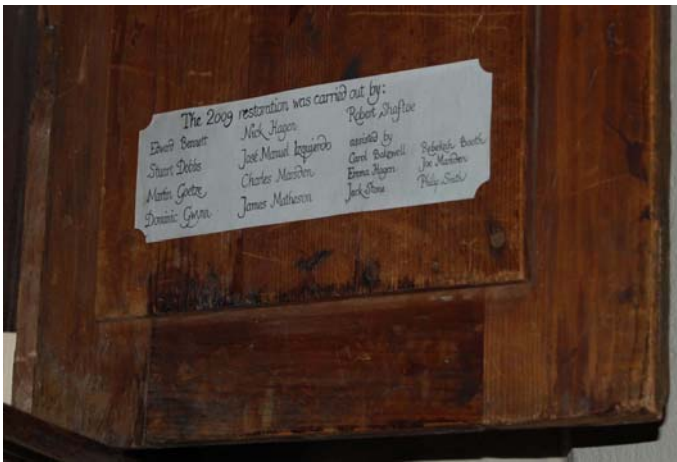 The 2009 restoration was carried out by:
Edward Bennett
Stuart Dobbs
Martin Goetze
Dominic Gwynn
Nick Hagen
José Manuel Izquierdo
Charles Marsden
James Matheson
Robert Shaftoe
assisted by
Carol Bakewell
Emma Hagen
Jack Stone
Rebekah Booth
Joe Marsden
Philip Smith